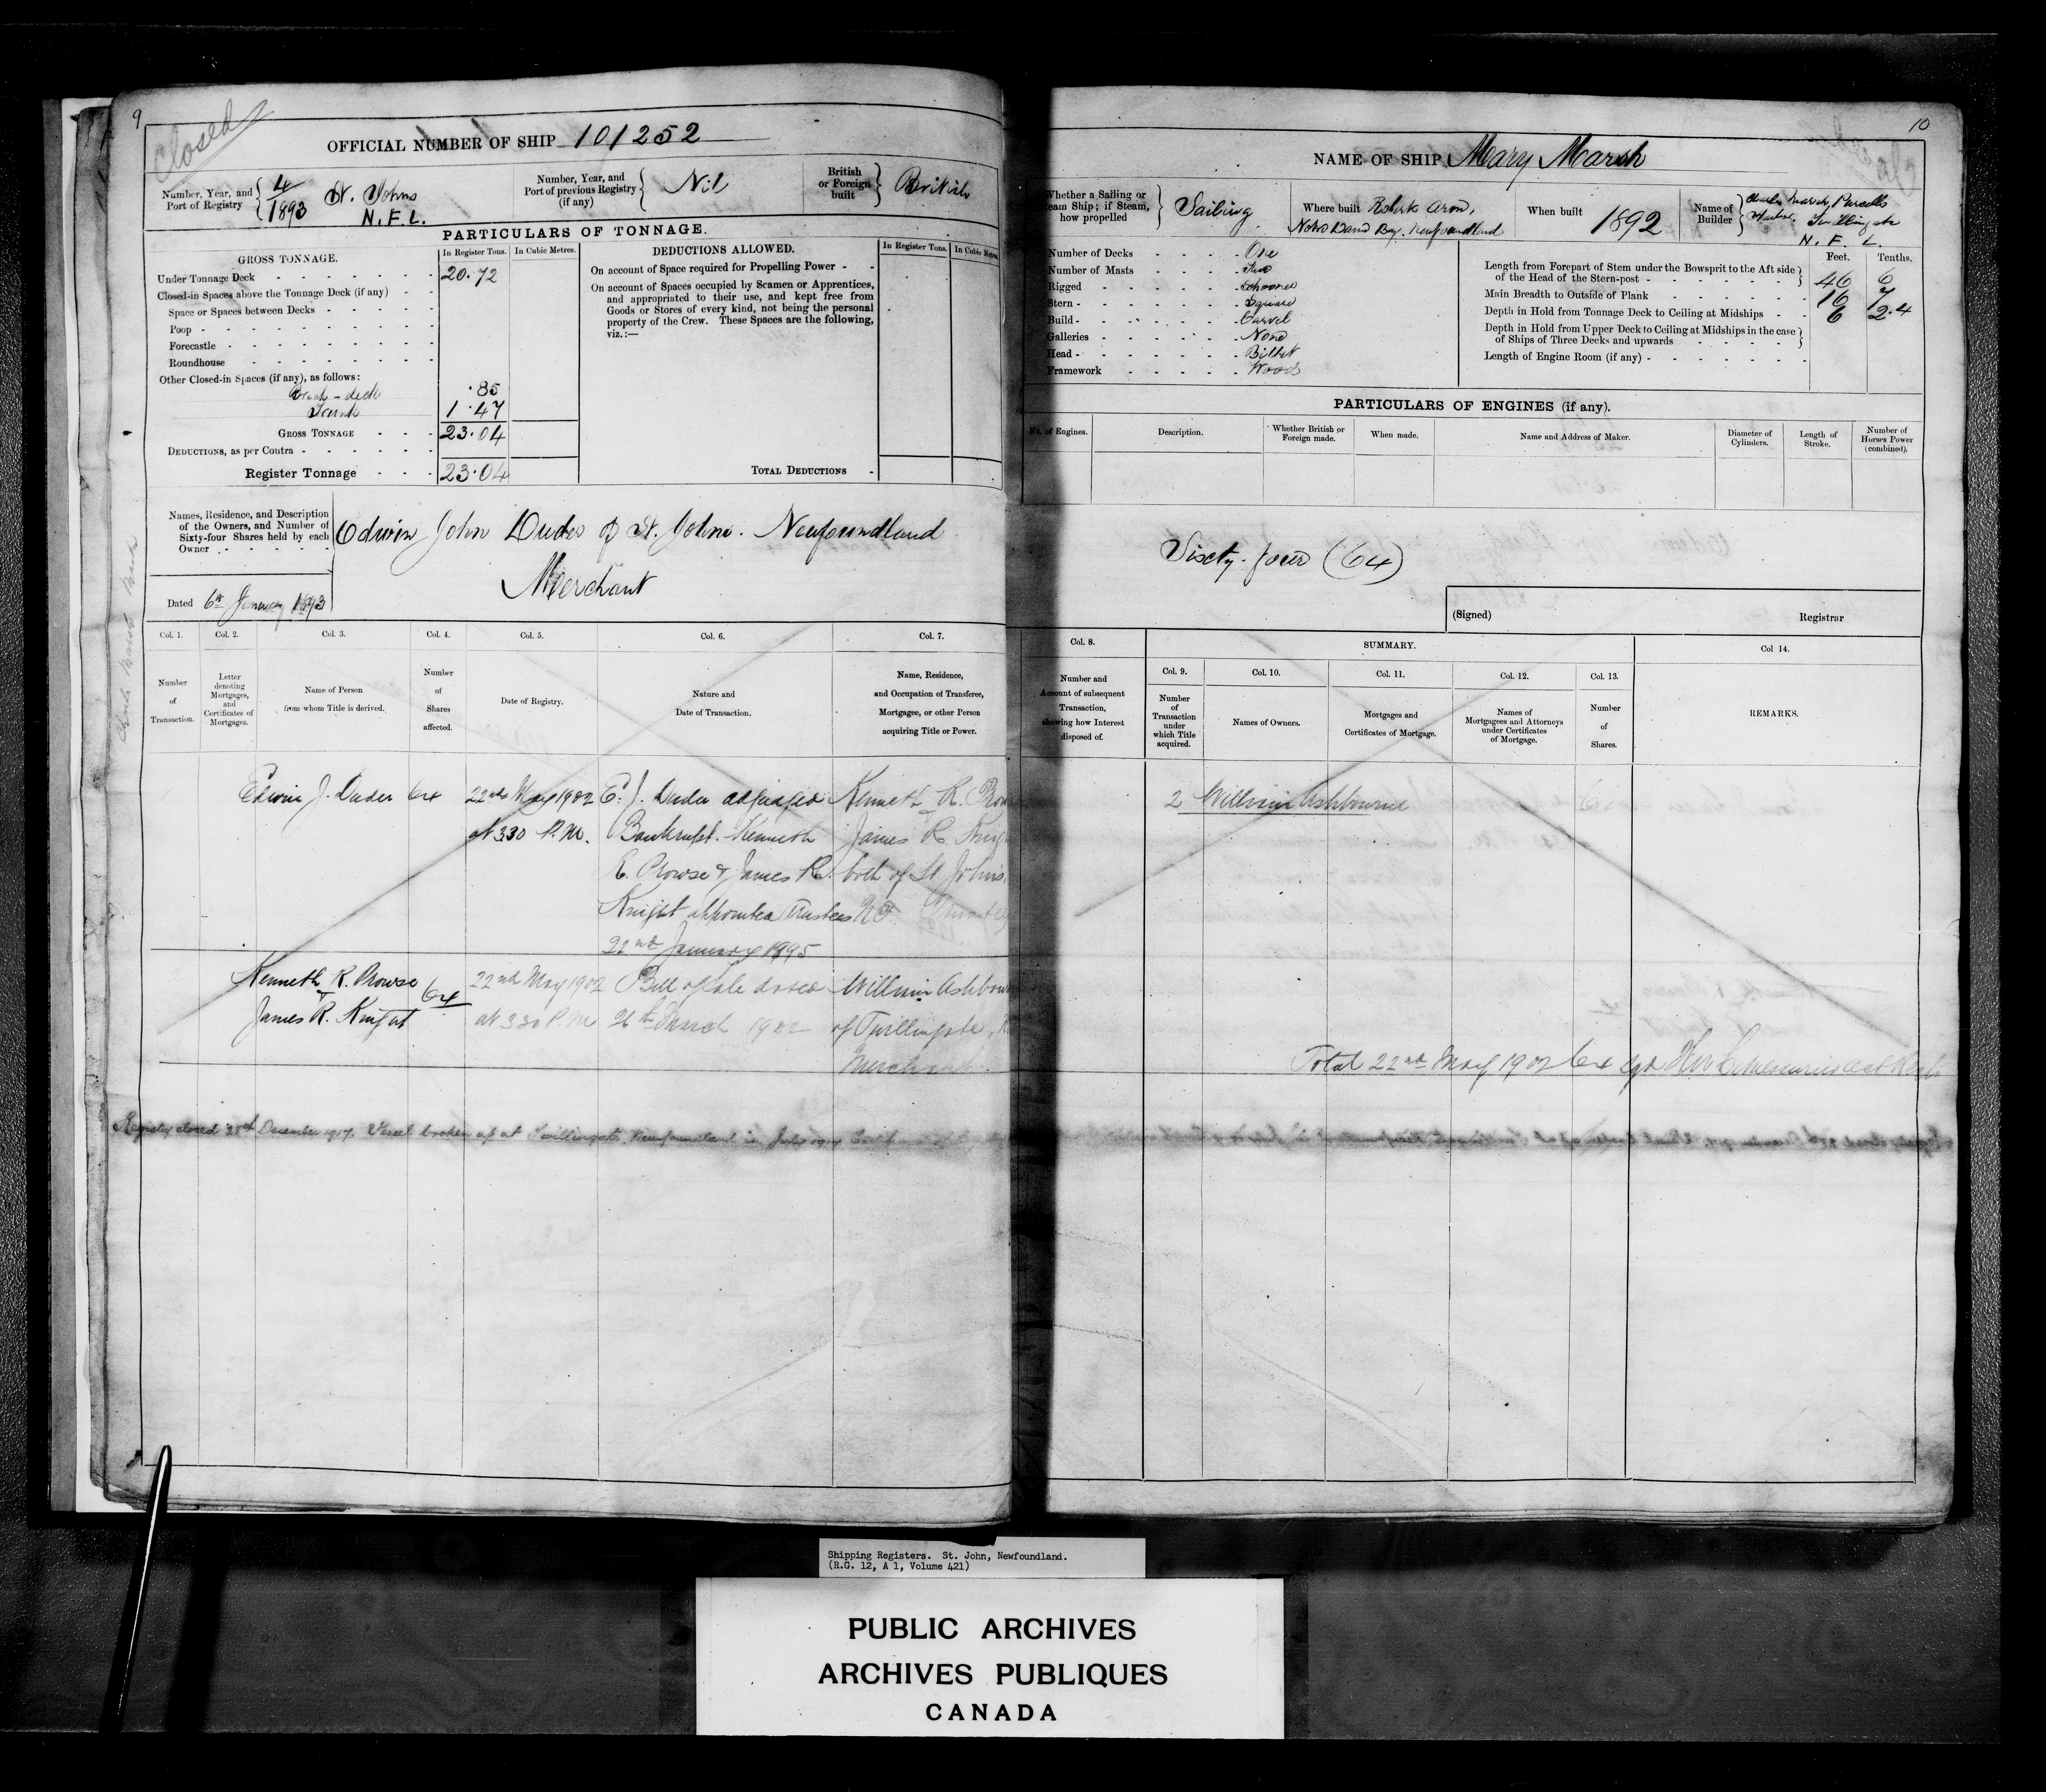 9
Closed
OFFICIAL NUMBER OF SHIP 101252
Number, Year, and Port of Registry
4/1893 St. Johns N.F.L.
Number, Year, and Port of previous Registry (if any)
Nil
British or Foreign built
British
PARTICULARS OF TONNAGE.
GROSS TONNAGE.
In Register Tons.
In Cubic Metres.
Under Tonnage Deck 20.72
Closed-in Spaces above the Tonnage Deck (if any)
Space or Spaces between Decks
Poop
Forecastle
Roundhouse
Other Closed-in Spaces (if any), as follows:
deck .85
Trunk 1.47
GROSS TONNAGE 23.04
DEDUCTIONS, as per Contra
Register Tonnage 23.04
DEDUCTIONS ALLOWED.
In Register Tons.
In Cubic Metres.
On account of Space required for Propelling Power
On account of Spaces occupied by Seamen or Apprentices,
and appropriated to their use, and kept free from
Goods or Stores of every kind, not being the personal
property of the Crew. These Spaces are the following,
viz.:—
TOTAL DEDUCTIONS
Names, Residence, and Description
of the Owners, and Number of
Sixty-four Shares held by each
Owner
Edwin John Duder of St. Johns. Newfoundland
Merchant
Dated 6th January 1893
Col. 1.
Number of Transaction.
Col. 2.
Letter denoting Mortgages, and Certificates of Mortgages.
Col. 3.
Name of Person from whom Title is derived.
Col. 4.
Number of Shares affected.
Col. 5.
Date of Registry.
Col. 6.
Nature and Date of Transaction.
Col. 7.
Name, Residence, and Occupation of Transferee, Mortgagee, or other Person acquiring Title or Power.
Edwin J. Duder 64 22nd May 1902 E. J. Duder adjudged Kenneth R.
at 3 30 P.M. Bankrupt. Kenneth James R.
R. Prowse & James R. both of St Johns
Knight appointed Trustees N.F.
22nd January 1895
Kenneth R. Prowse 64 22nd May 1902 Bill of Sale dated William
& James R. Knight at 3 30 P.M March 1902 of Twillingate
Merchant
Registry closed December 1917. Vessel broken up at Twillingate, Newfoundland in July
10
NAME OF SHIP Mary Marsh
Whether a Sailing or
Steam Ship; if Steam,
how propelled
Sailing
Where built Roberts Arm,
Notre Dame Bay. Newfoundland
When built 1892
Name of Builder
Charles Marsh, Purcells
Harbor, Twillingate
N. F. L.
Number of Decks One
Number of Masts Two
Rigged Schooner
Stern Square
Build Carvel
Galleries None
Head Billet
Framework Wood
Feet. Tenths.
Length from Forepart of Stem under the Bowsprit to the Aft side
of the Head of the Stern-post 46 6
Main Breadth to Outside of Plank 16 7
Depth in Hold from Tonnage Deck to Ceiling at Midships 6 2.4
Depth in Hold from Upper Deck to Ceiling at Midships in the case
of Ships of Three Decks and upwards
Length of Engine Room (if any)
PARTICULARS OF ENGINES (if any).
No. of Engines.
Description.
Whether British or Foreign made.
When made.
Name and Address of Maker.
Diameter of Cylinders.
Length of Stroke.
Number of Horses Power (combined).
Sixty-four (64)
(Signed) Registrar
Col. 8.
Number and Account of subsequent Transaction, showing how Interest disposed of.
SUMMARY.
Col. 9.
Number of Transaction under which Title acquired.
Col. 10.
Names of Owners.
Col. 11.
Mortgages and Certificates of Mortgage.
Col. 12.
Names of Mortgagees and Attorneys under Certificates of Mortgage.
Col. 13.
Number of Shares.
Col 14.
REMARKS.
2 William Ashbourne
Total 22nd May 1902 64
Shipping Registers. St. John, Newfoundland.
(R.G. 12, A 1, Volume 421)
PUBLIC ARCHIVES
ARCHIVES PUBLIQUES
CANADA